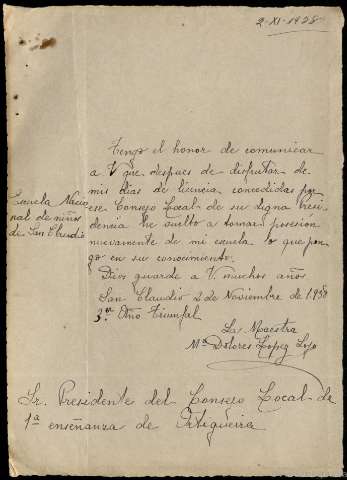 2-XI-1938
Tengo el honor de comunicar
a V que despues de disfrutar de
mis dias de licencia concedidas por
ese Consejo Local de su digna Presi-
dencia he vuelto a tomar posesión
nuevamente de mi escuela lo que pon-
go en su conocimiento.
Escuela Nacio
nal de niños
de San Claudio
Dios guarde a V muchos años
San Claudio 2 de Noviembre de 1938
3er Año Triunfal
La Maestra
Mª Dolores Lopez
Sr. Presidente del Consejo Local de
1ª enseñanza de Ortigueira